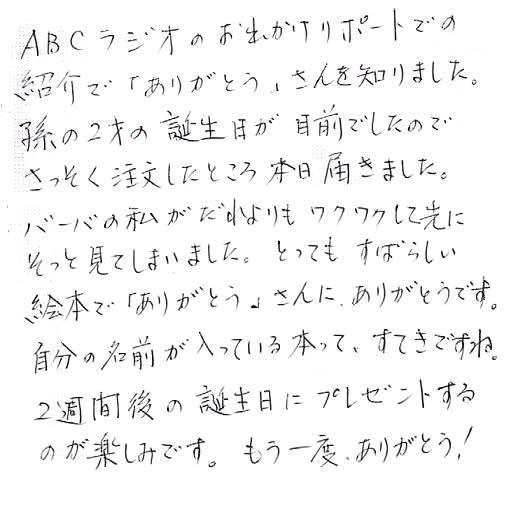 ABCラジオのお出かけリポートでの
紹介で「ありがとう」さんを知りました。
孫の2才の誕生日が目前でしたので
さっそく注文したところ本日届きました。
バーバの私がだれよりもワクワクして先に
そっと見てしまいました。とってもすばらしい
絵本で「ありがとう」さんに、ありがとうです。
自分の名前が入っている本って、すてきですね。
2週間後の誕生日にプレゼントする
のが楽しみです。もう一度、ありがとう!